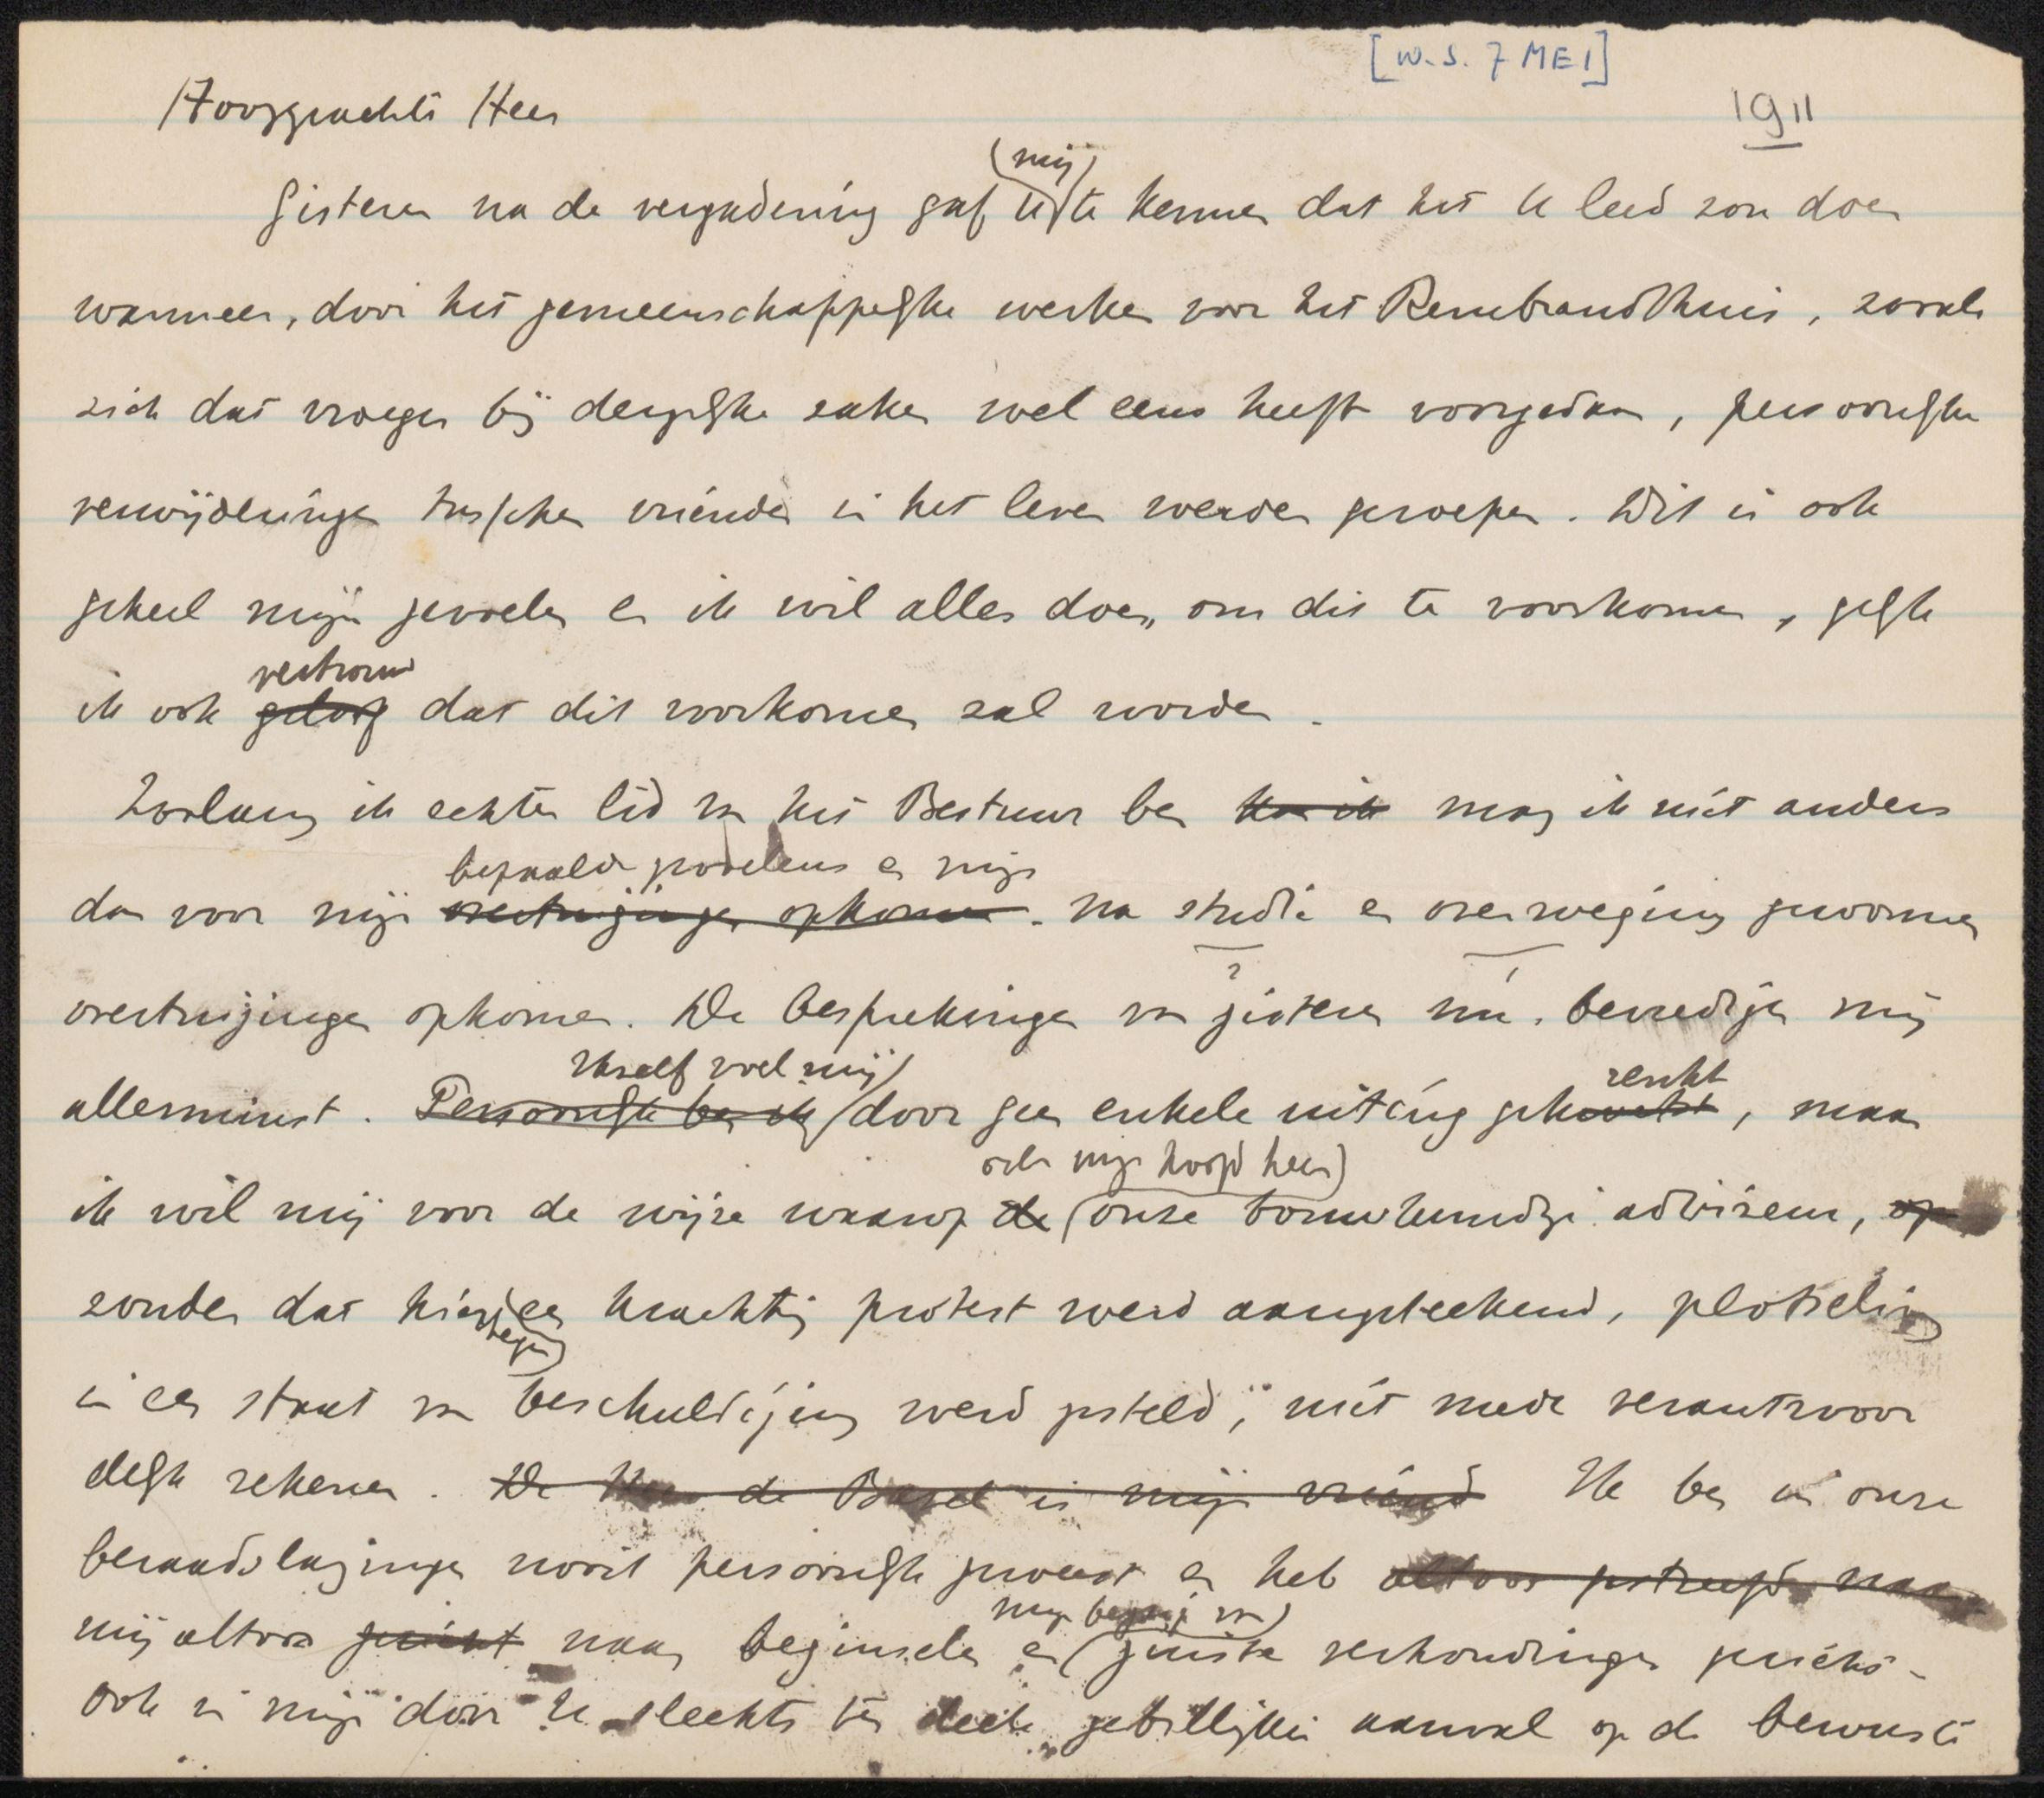 [W.S. 7 MEI]
1911
Hooggeachte Heer
Gisteren na de vergadering gaf U (mij) te kennen dat het U leed zou doen
wanneer, door het gemeenschappelijke werken voor het Rembrandthuis, zooals
zich dat vroeger bij dergelijke zaken wel eens heeft voorgedaan, persoonlijke
verwijderingen tusschen vrienden in het leven werden geroepen. Dit is ook
geheel mijn gevoelen en ik wil alles doen om dit te voorkomen, gelijk
vertrouw
ik ook geloof dat dit voorkomen zal worden.
Zoolang ik echter lid van het Bestuur ben kan ik mag ik niet anders
bepaalde gevoelens en mijn
dan voor mijn overtuigingen opkomen. na studie en overweging gewonnen
overtuigingen opkomen. De besprekingen van gisteren nu, bevredigen mij
Ikzelf voel mij
allerminst. Persoonlijk ben ik door geen enkele uiting gekwetst, maar
over mijn hoofd heen
ik wil mij voor de wijze waarop de onze bouwkundige adviseur, op
zonder dat hier een krachtig protest werd aangeteekend, plotseling
tegen
in een staat van beschuldiging werd gesteld, niet mede verantwoor
delijk rekenen. De Heer de Bazel is mijn vriend Ik ben in onze
beraadslagingen nooit persoonlijk geweest en heb altoos gestreefd naar
mijn begrip van
mij altoos gericht naar beginselen en juiste verhoudingen gericht.
Ook in mijn door U slechts ten deele gebillijkte aanval op de bewuste